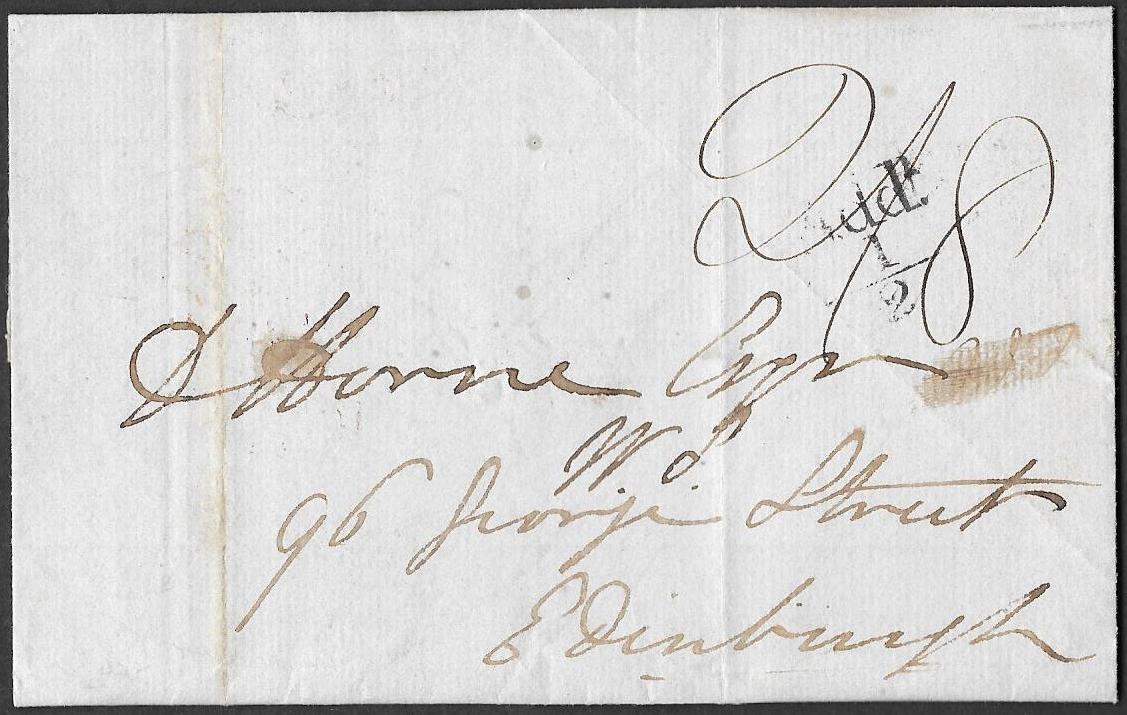 2/8
Add.l
1/2
D Horne Esqr
W.S.
96 George Street
Edinburgh